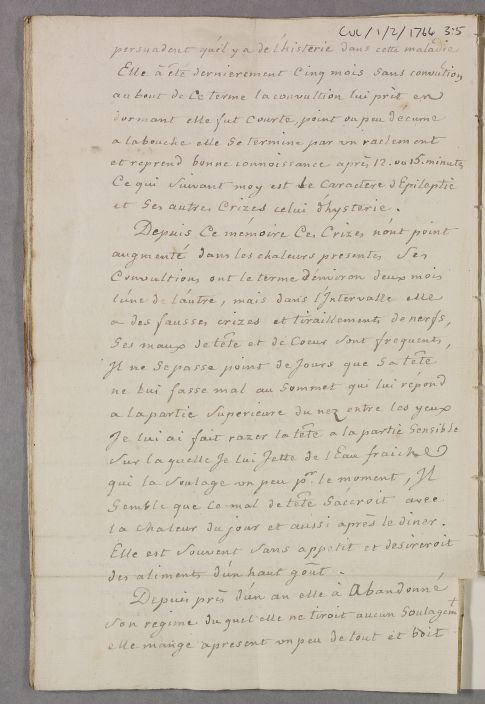 CUL/1/2/1764 3:5
persuadent qu'il y a de l'histerie dans cette maladie
Elle à été dernierement Cinq mois Sans convultion
au bout de Ce terme la convultion lui prit en
dormant elle fut Courte, point ou peu d'ecume
a la bouche elle Se termine par un raclement
et reprend bonne connoissance après 12. ou 15. minutes
Ce qui Suivant moy est Le Caractere d'Epileptie
et Ses autres Crizes celui d'hysterie.
Depuis Ce memoire Ces Crizes n'ont point
augmenté dans les chaleurs presentes Ses
Convultions ont le terme d'environ deux mois
l'une de l'autre, mais dans l'Intervalle elle
a des fausses crizes et tiraillements de nerfs,
Ses maux de tête et de Coeur Sont frequents,
Il ne Se passe point de Jours que Sa tête
ne lui fasse mal au Sommet qui lui repond
a la partie Superieure du nez entre les yeux
Je lui ai fait razer la tête a la partie Sensible
Sur la quelle Je lui Jette de l'Eau fraiche
qui la Soulage un peu pr. le moment, Il
Semble que Ce mal de tête S'accroit avec
la chaleur du jour et aussi après le diner.
Elle est Souvent Sans appetit et desireroit
des aliments d'un haut goût.
Depuis près d'un an elle à Abandonné
Son regime du quel elle ne tiroit aucun Soulagemt
elle mange apresent un peu de tout et boit